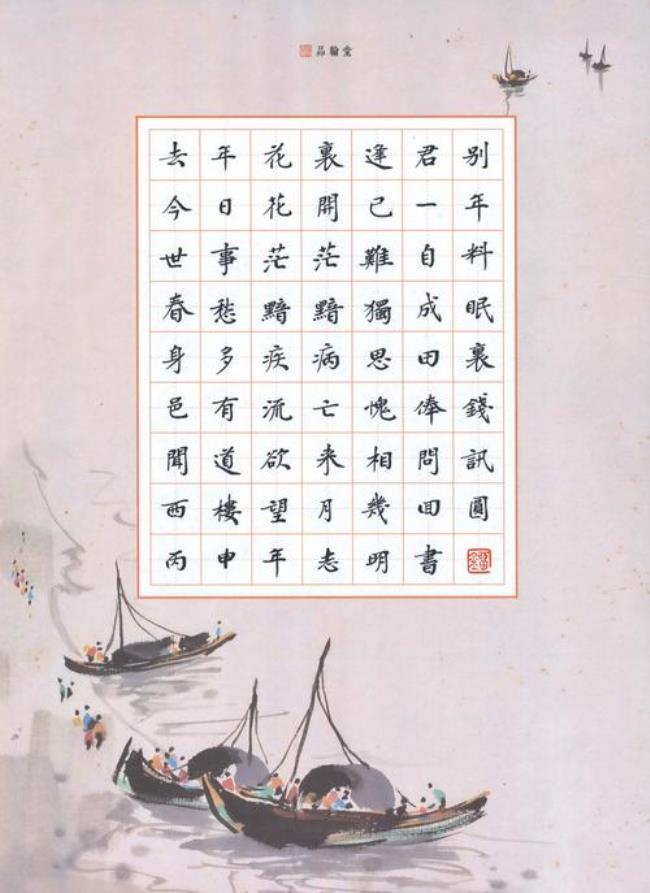 品翰堂
去年花裏逢君别
今日花開己一年
世事茫茫難自料
春愁黯黯獨成眠
身多疾病思田裏
邑有流亡愧俸錢
聞道欲来相問訊
西樓望月幾囬圓
丙申年志明書